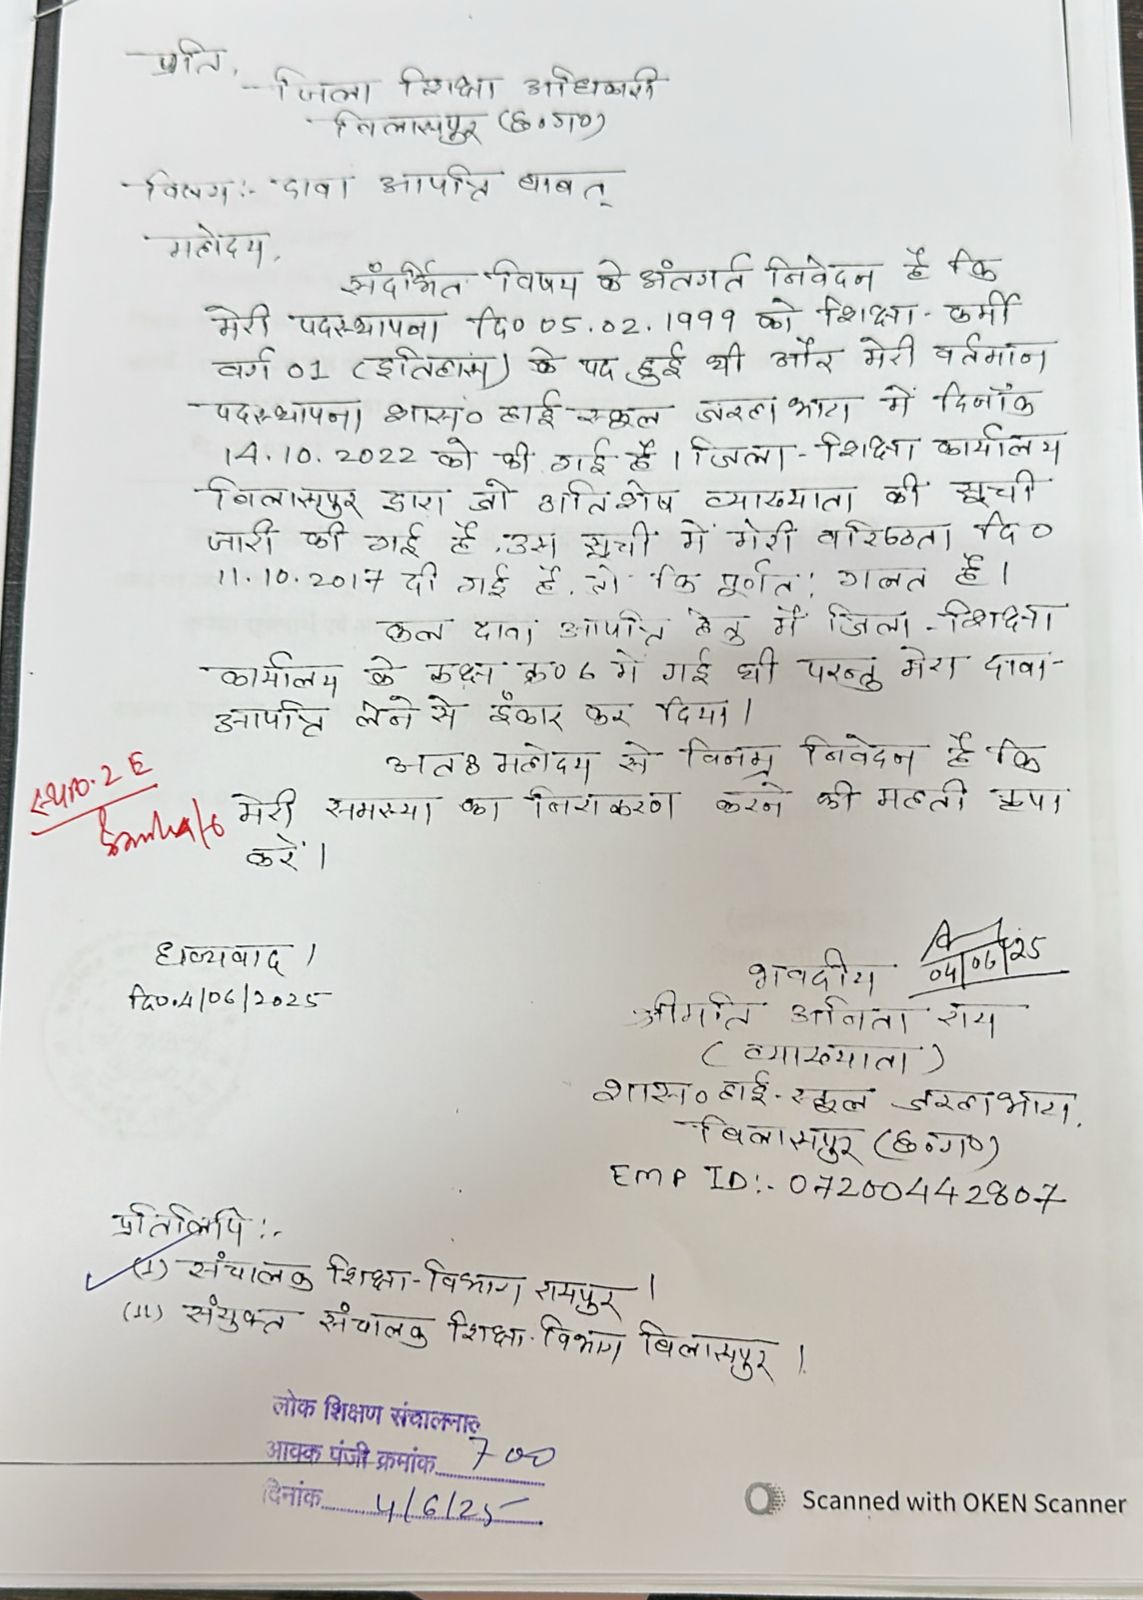 प्रति,
जिला शिक्षा अधिकारी
बिलासपुर (छ०ग०)
विषय:- दावा आपत्ति बाबत्
महोदय,
संदर्भित विषय के अंतगर्त निवेदन है कि
मेरी पदस्थापना दि० 05.02.1999 को शिक्षा-कर्मी
वर्ग 01 (इतिहास) के पद हुई थी और मेरी वर्तमान
पदस्थापना शास० हाई-स्कूल जरहाभाटा में दिनाँक
14.10.2022 को की गई है। जिला-शिक्षा कार्यालय
बिलासपुर द्वारा जो अतिशेष व्याख्याता की सूची
जारी की गई है, उस सूची में मेरी वरिष्ठता दि०
11.10.2017 दी गई है, जो कि पूर्णत: गलत है।
कल दावा आपत्ति हेतु मैं जिला-शिक्षा
कार्यालय के कक्ष क्र० 6 में गई थी परन्तु मेरा दावा-
आपत्ति लेने से इँकार कर दिया।
अतः महोदय से विनम्र निवेदन है कि
स्था०-2 E
मेरी समस्या का निराकरण करने की महती कृपा
करें।
धन्यवाद।
दि०.4/06/2025
04/06/25
भवदीय
श्रीमति अनिता राय
(व्याख्याता)
शास० हाई-स्कूल जरहाभाटा,
बिलासपुर (छ०ग०)
EMP ID:- 07200442807
प्रतिलिपि:-
(I) संचालक शिक्षा-विभाग रायपुर।
(II) संयुक्त संचालक शिक्षा-विभाग बिलासपुर।
लोक शिक्षण संचालनालय
आवक पंजी क्रमांक 700
दिनांक 4/6/25
Scanned with OKEN Scanner